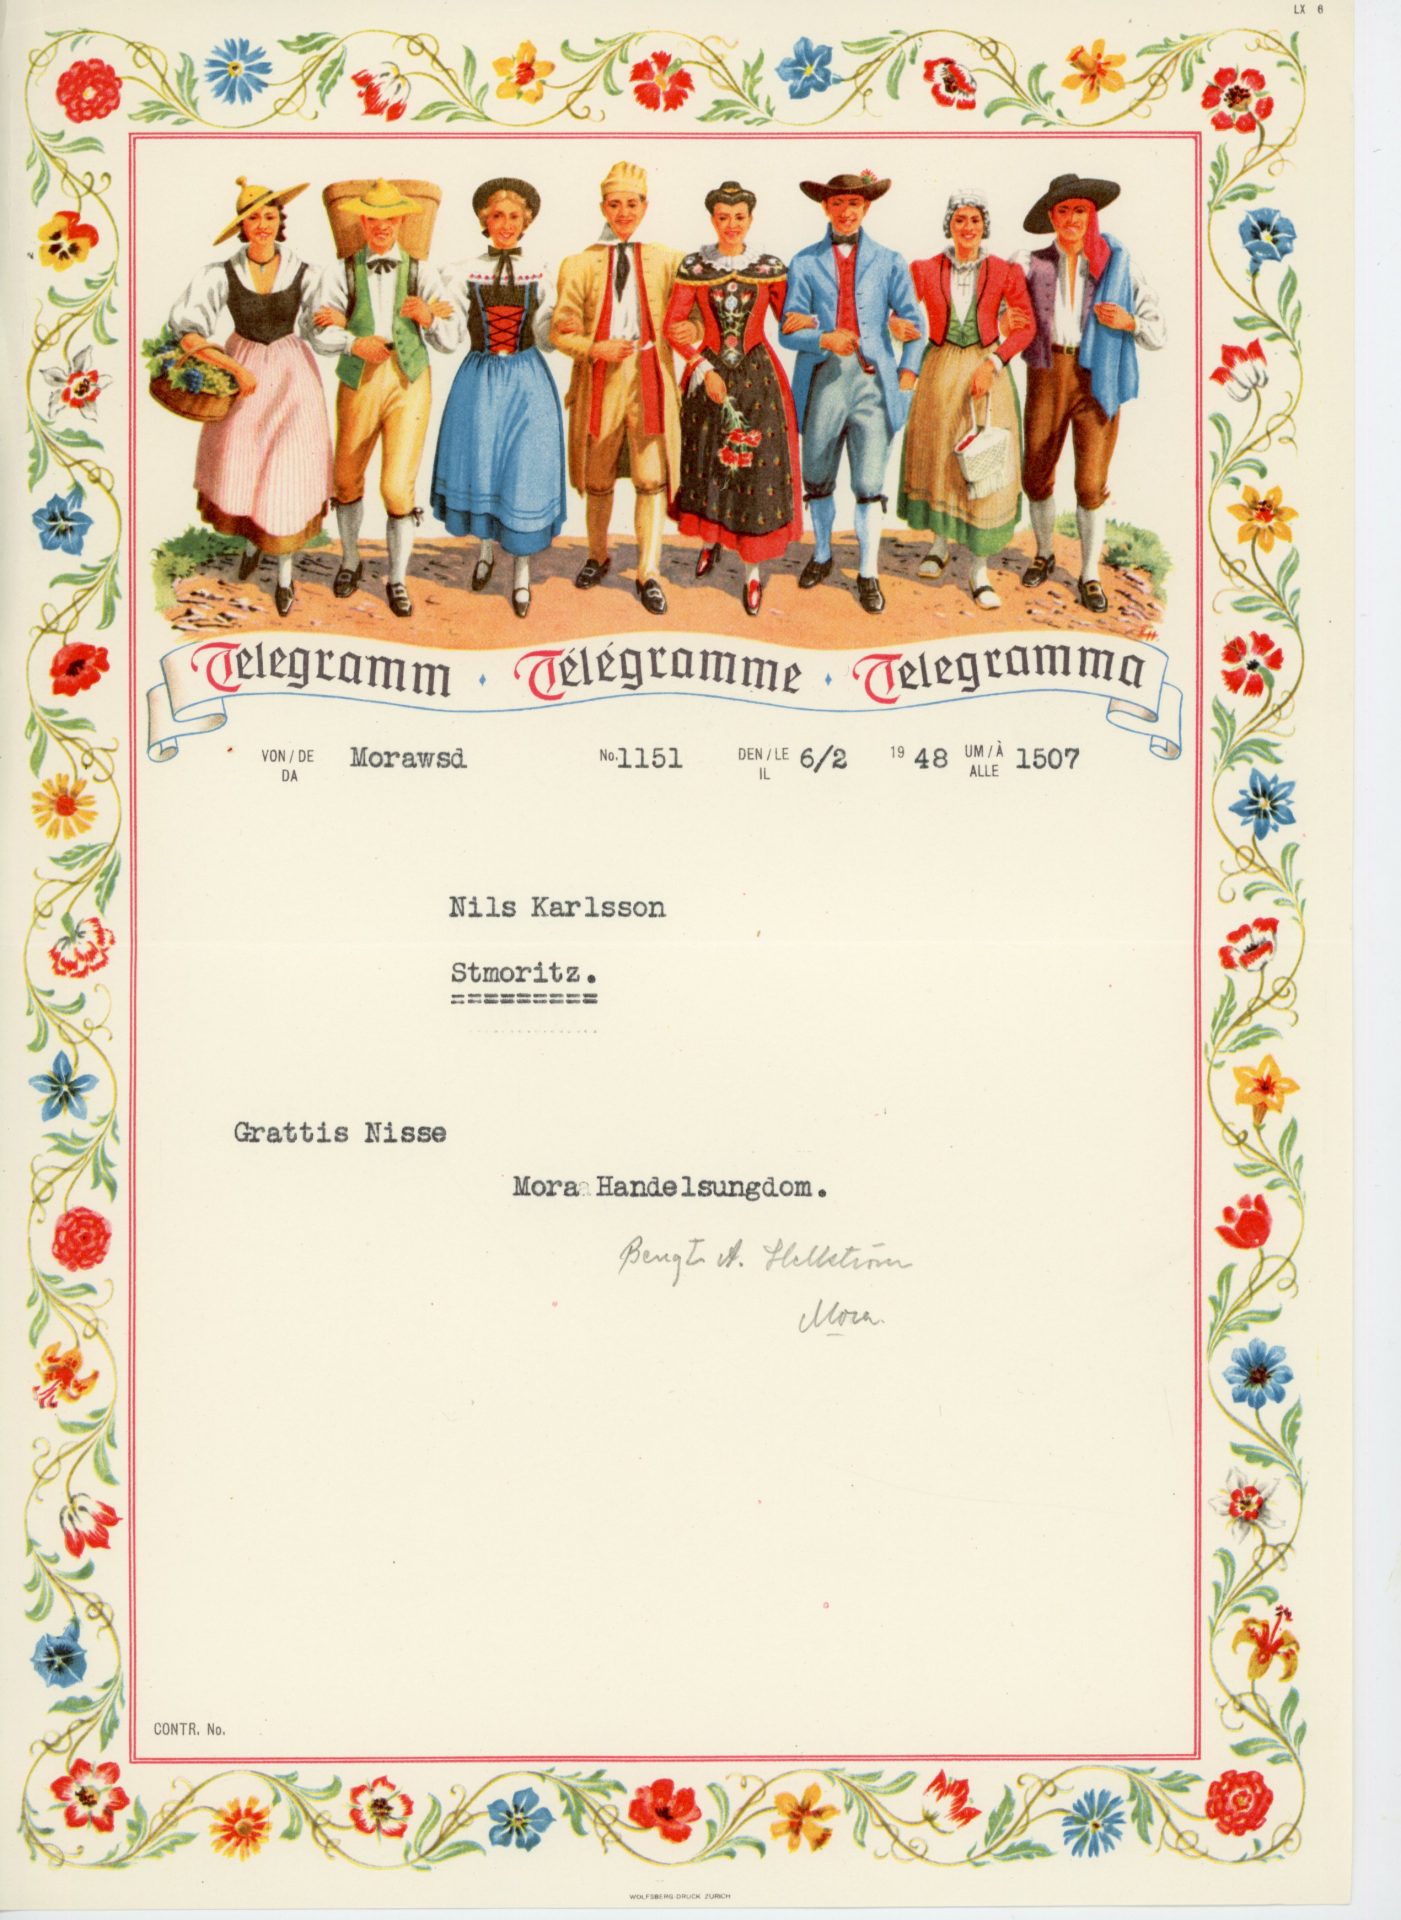 LX 6
Telegramm · Télégramme · Telegramma
VON/DE DA Morawsd No. 1151 DEN/LE IL 6/2 19 48 UM/À ALLE 1507
Nils Karlsson
Stmoritz.
=========
Grattis Nisse
Mora Handelsungdom.
Bengt A. Hellström
Mora.
CONTR. No.
WOLFSBERG-DRUCK ZÜRICH